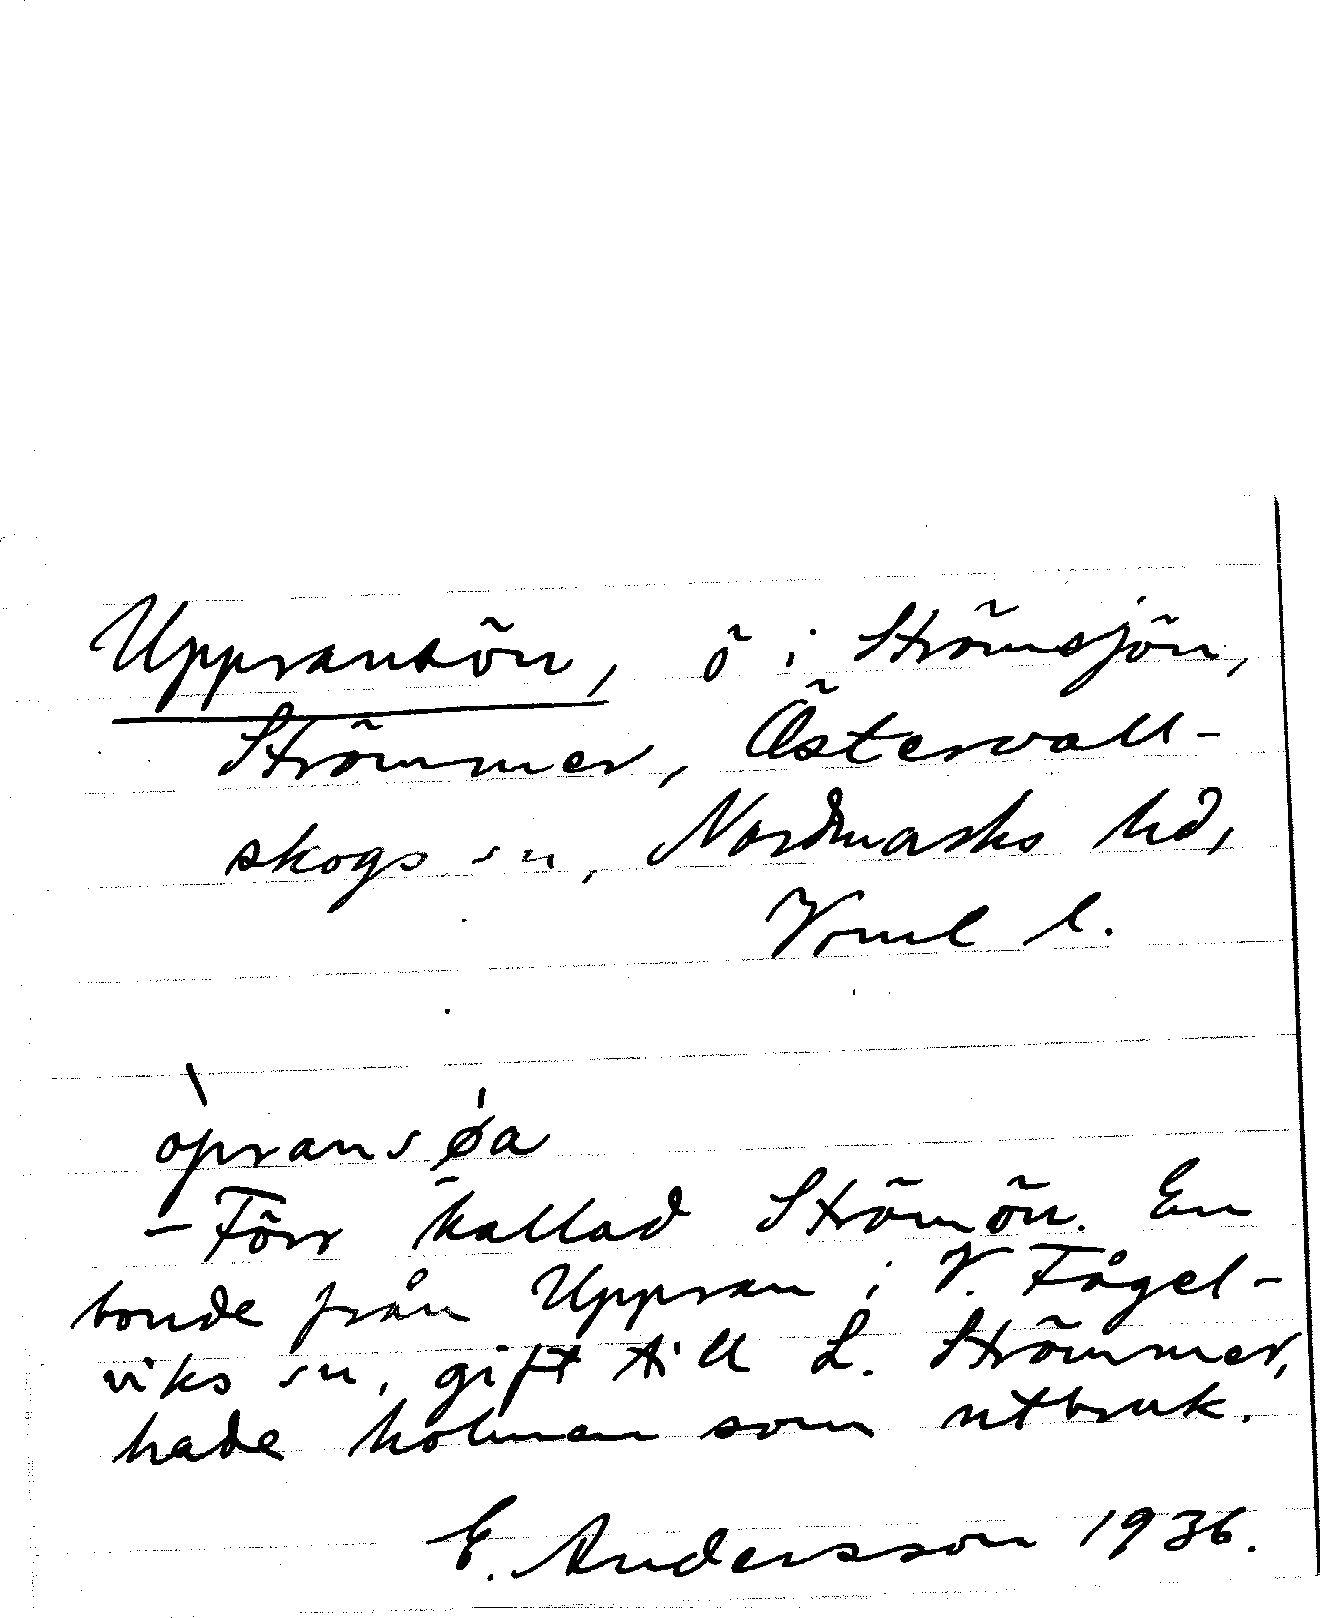 Uppransön, ö i Strömsjön,
Strömmer, Östervall-
skogs sn, Nordmarks hd,
Vrml l.
òpransǿa
- Förr kallad Strömön. En
bonde från Uppran i V. Fågel-
viks sn, gift till L. Strömmer,
hade holmen som utbruk.
E. Andersson 1936.